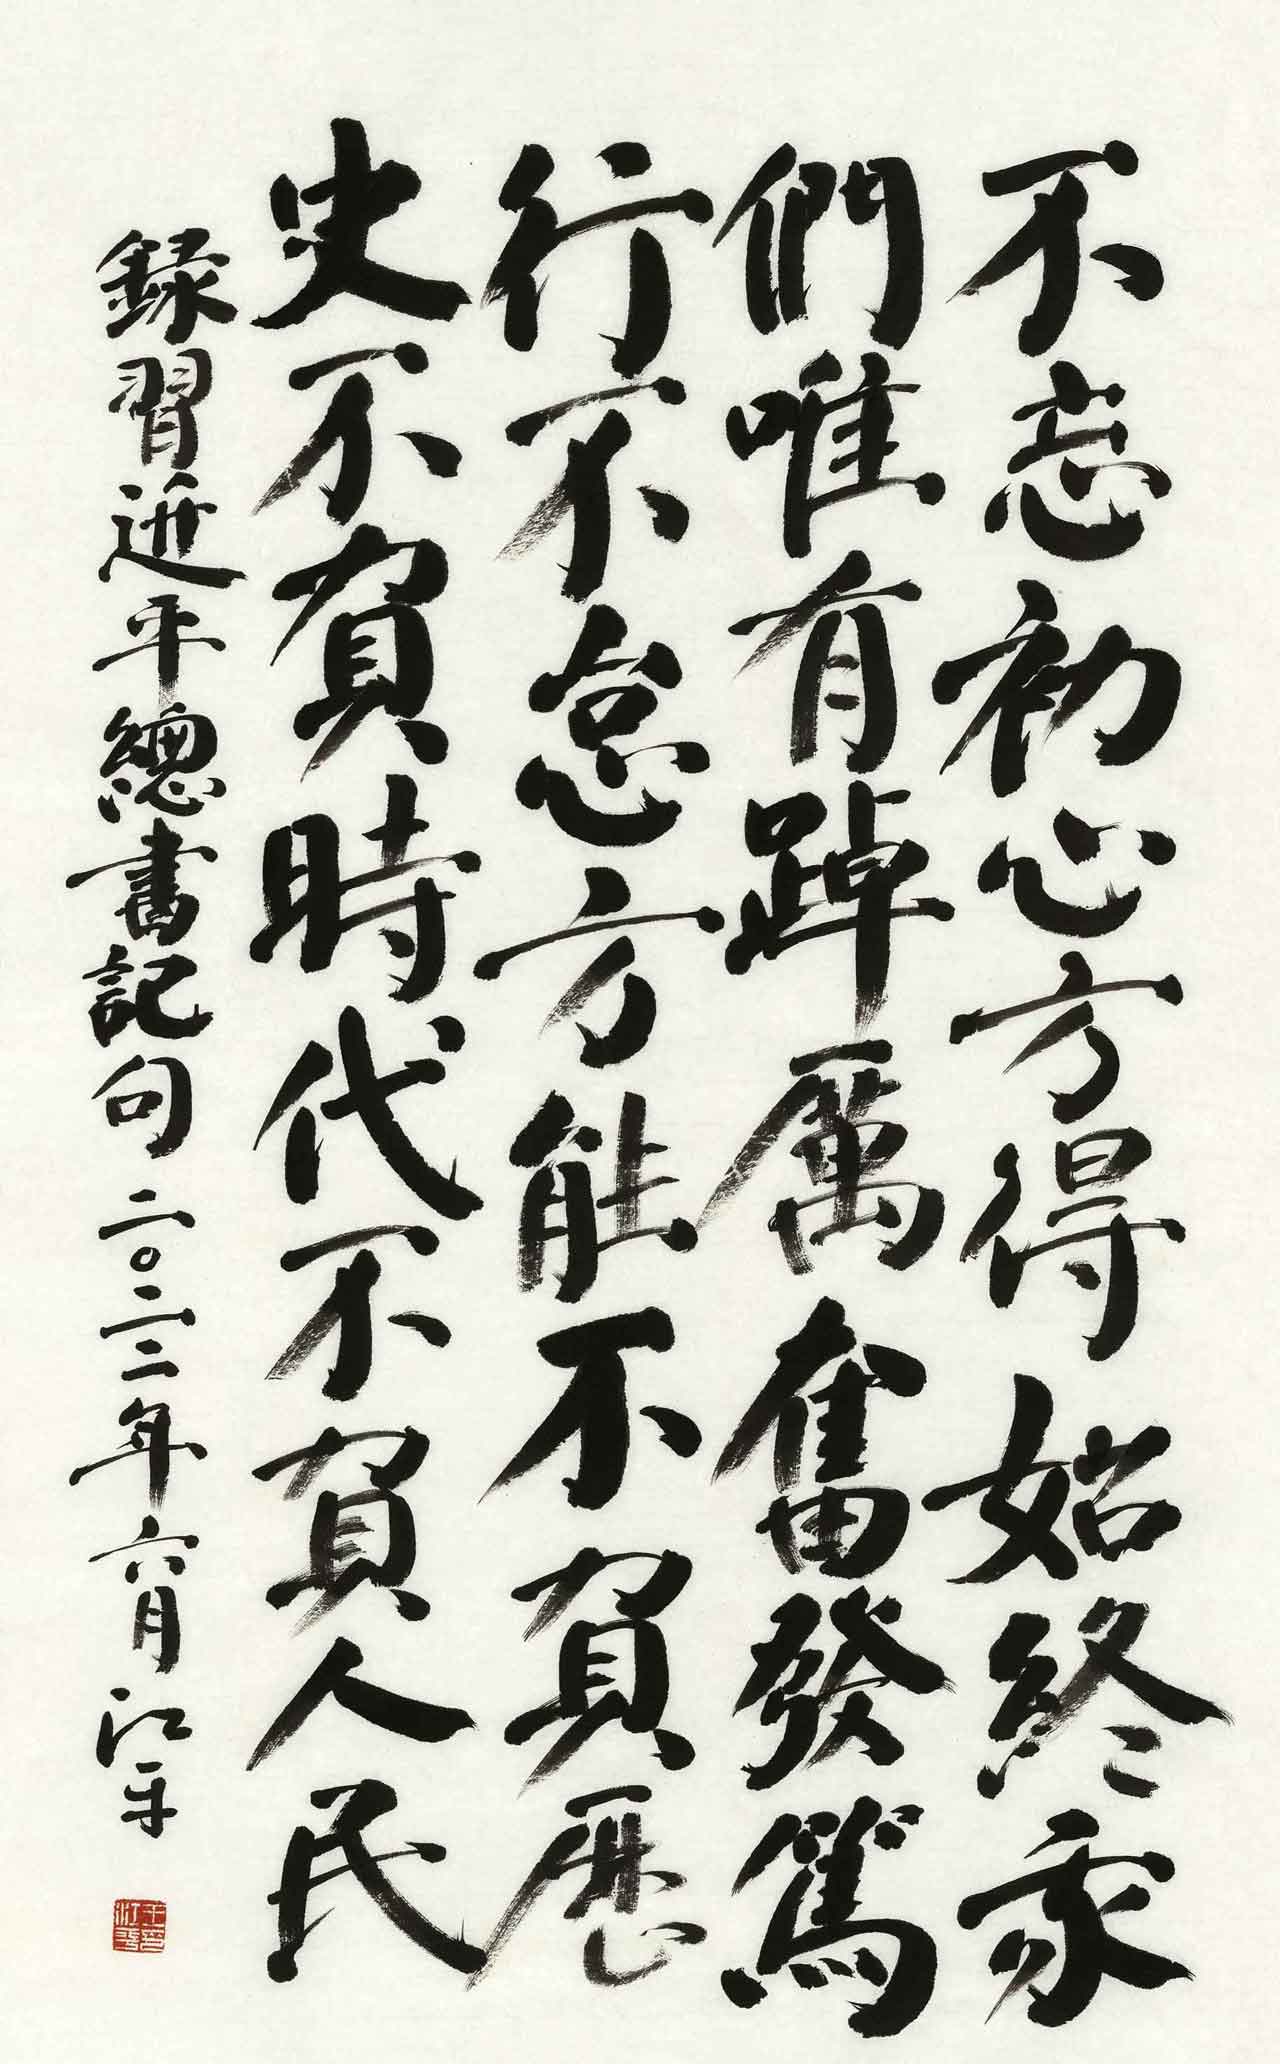 不忘初心方得始終我
們唯有踔厲奮發篤
行不怠方能不負歷
史不負時代不負人民
錄習近平總書記句二〇二二年六月江平